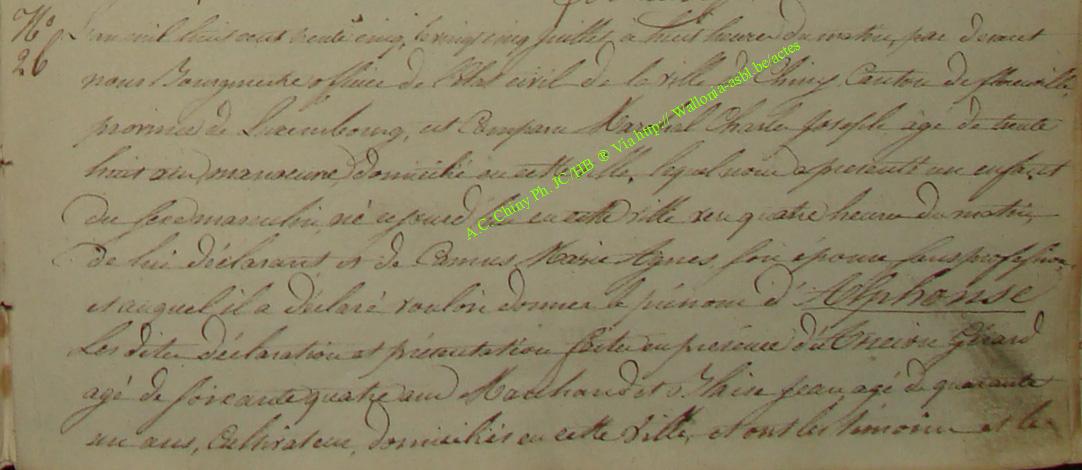 No
26
L'an mil huit cent trente cinq, le vingt cinq juillet a huit heures du matin, par devant
nous Bourgmestre officier de l'Etat civil de la ville de Chiny, Canton de florenville,
province de Luxembourg, est Comparu Maréchal Charles Joseph âgé de trente
huit ans, manœuvre, domicilié en cette ville, lequel nous a présenté un enfant
du sexe masculin, né cejourd'hui en cette ville vers quatre heures du matin,
de lui déclarant et de Camus Marie Agnes, son épouse sans profession,
et auquel il a déclaré vouloir donner le prénom d'Alphonse
Les dites déclaration et présentation faites en présence du Gérard
agé de soixante quatre ans Marchand et Blaise Jean agé de quarante
un ans, Cultivateur, domiciliés en cette Ville, et ont les témoins et le
A.C. Chiny Ph. JC/HB ® Via http:// Wallonia-asbl.be/actes